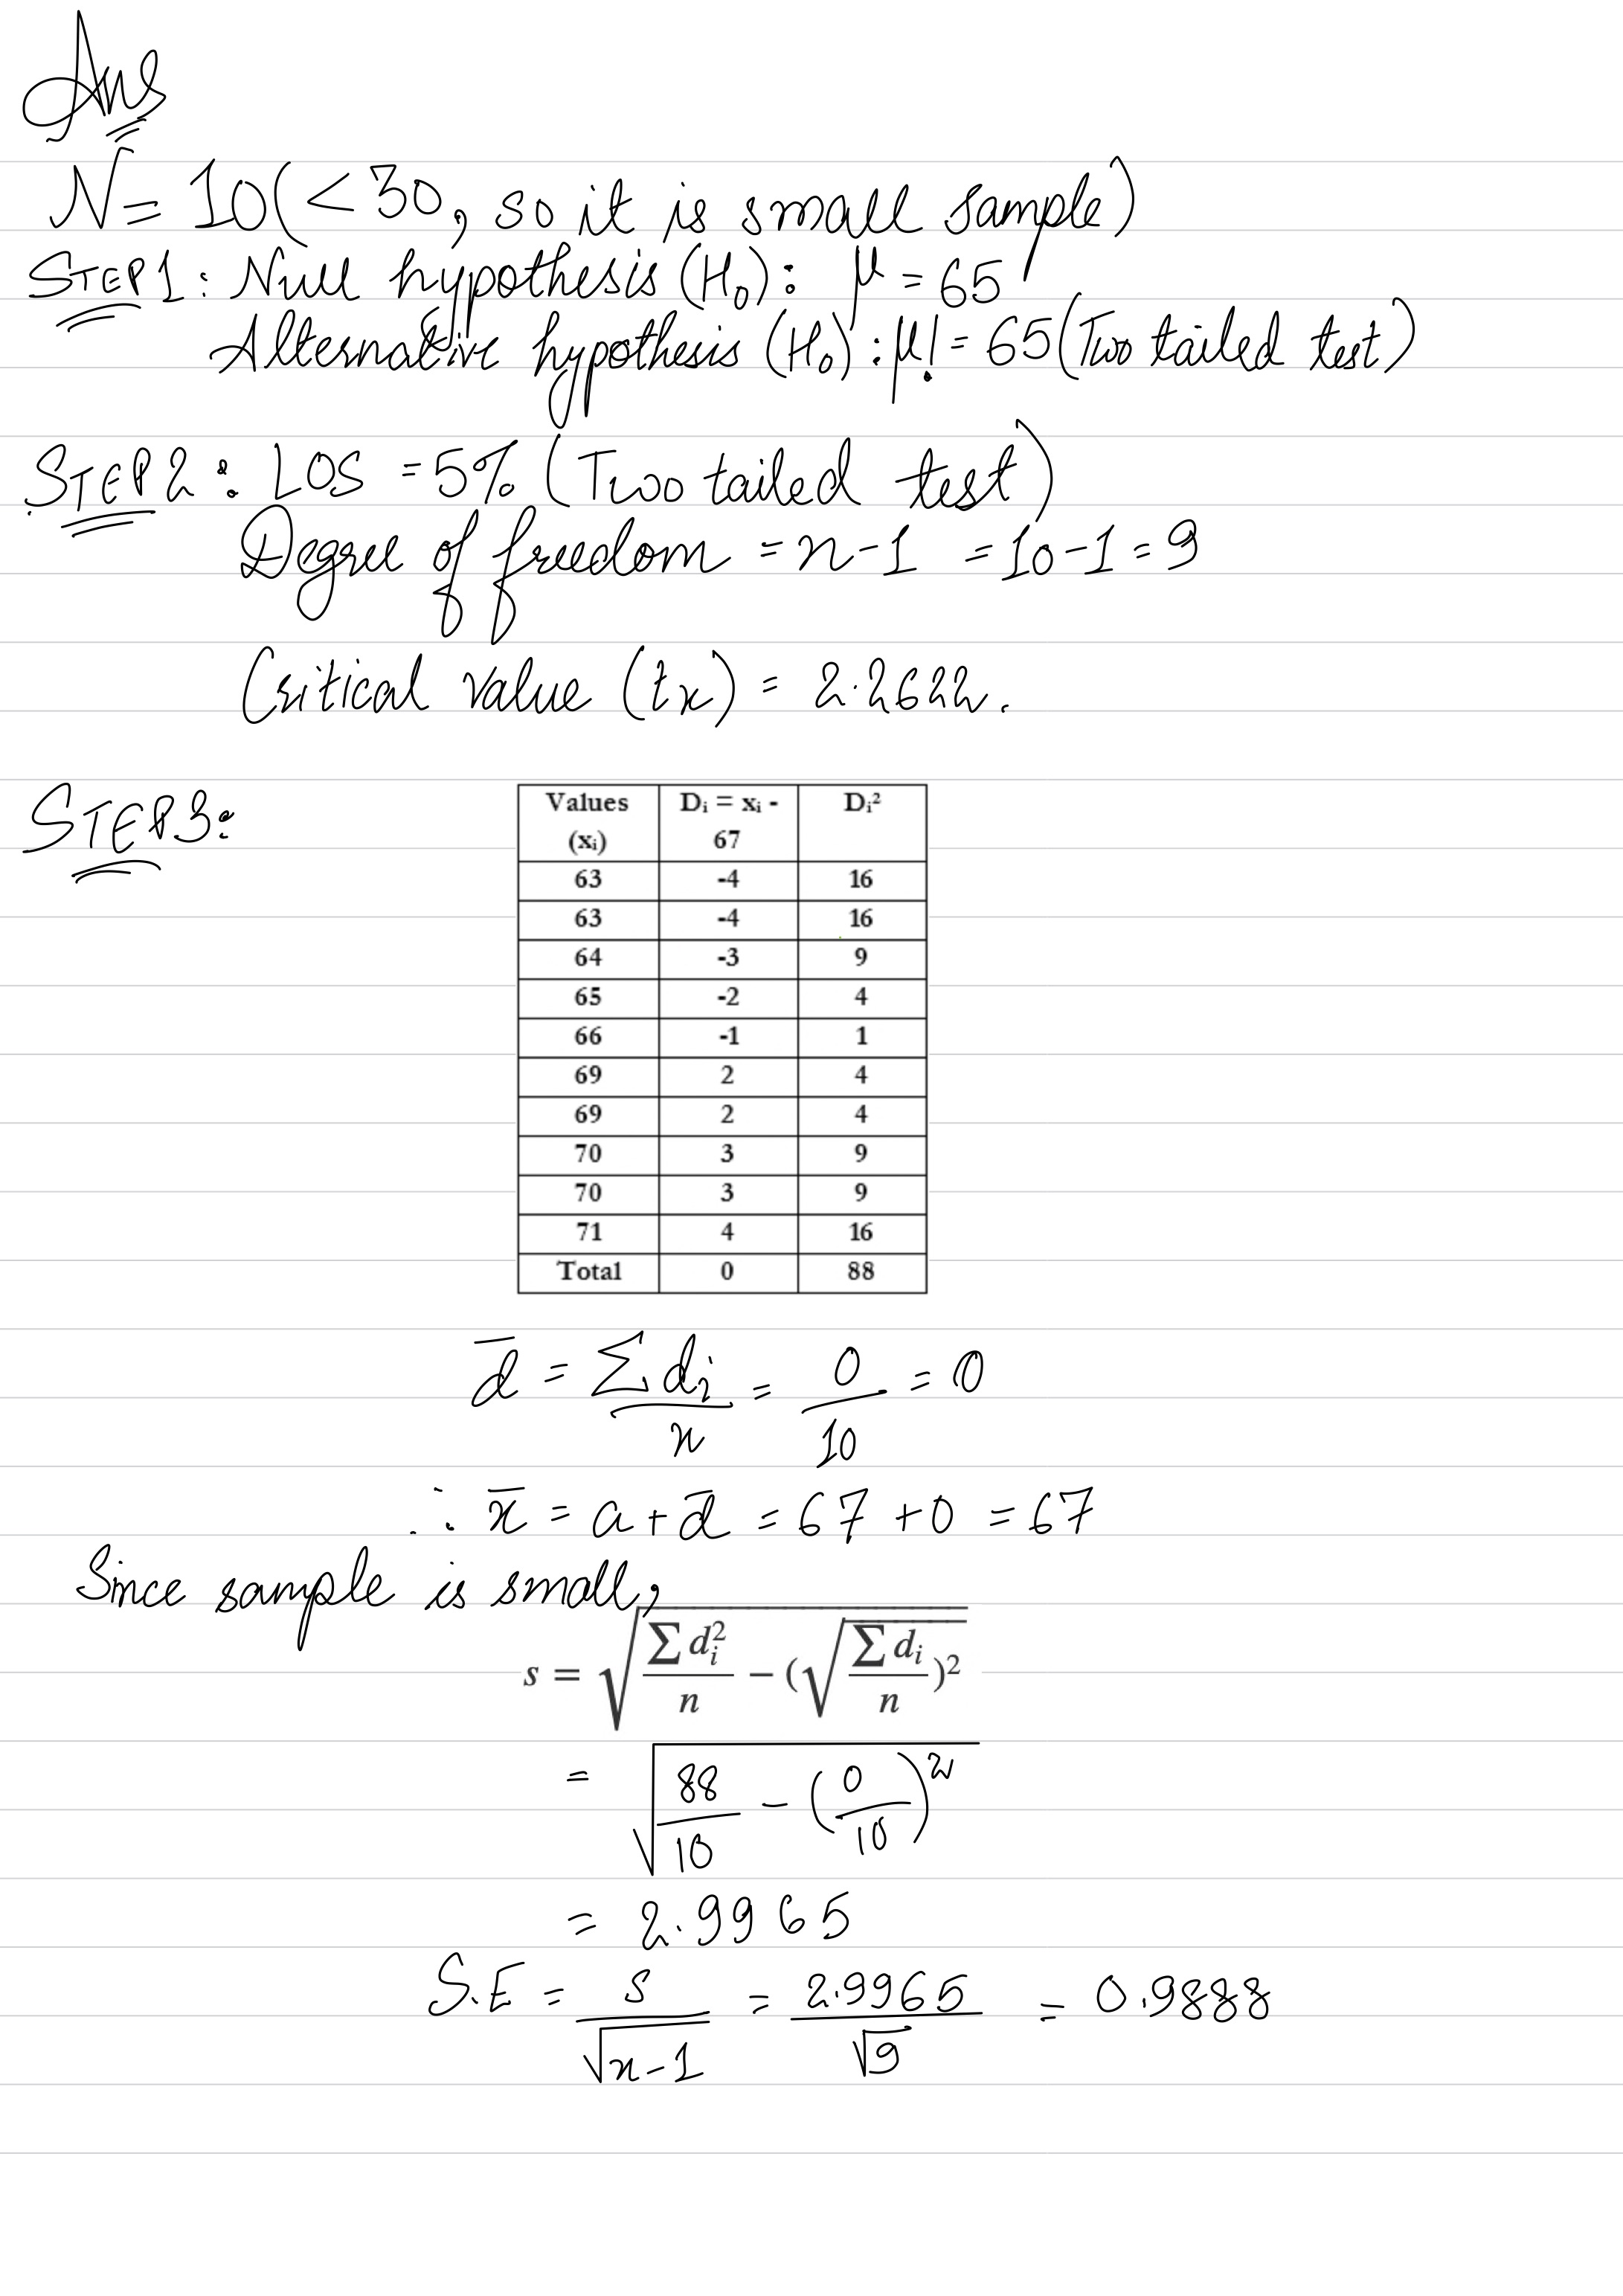 Ans
N = 10 (< 30, so it is small sample)
STEP1: Null hypothesis (H₀): μ = 65
Alternative hypothesis (H₀): μ! = 65 (Two tailed test)
STEP2: LOS = 5% (Two tailed test)
Degree of freedom = n-1 = 10-1 = 9
Critical value (tx) = 2.2622.
STEP3:
Values (xᵢ) | Dᵢ = xᵢ - 67 | Dᵢ²
63 | -4 | 16
63 | -4 | 16
64 | -3 | 9
65 | -2 | 4
66 | -1 | 1
69 | 2 | 4
69 | 2 | 4
70 | 3 | 9
70 | 3 | 9
71 | 4 | 16
Total | 0 | 88
d̄ = Σdᵢ/n = 0/10 = 0
∴ x̄ = a + d̄ = 67 + 0 = 67
Since sample is small,
s = √(Σdᵢ²/n - (√(Σdᵢ/n))²)
= √(88/10 - (0/10)²)
= 2.9965
S.E = s/√(n-1) = 2.9965/√9 = 0.9888